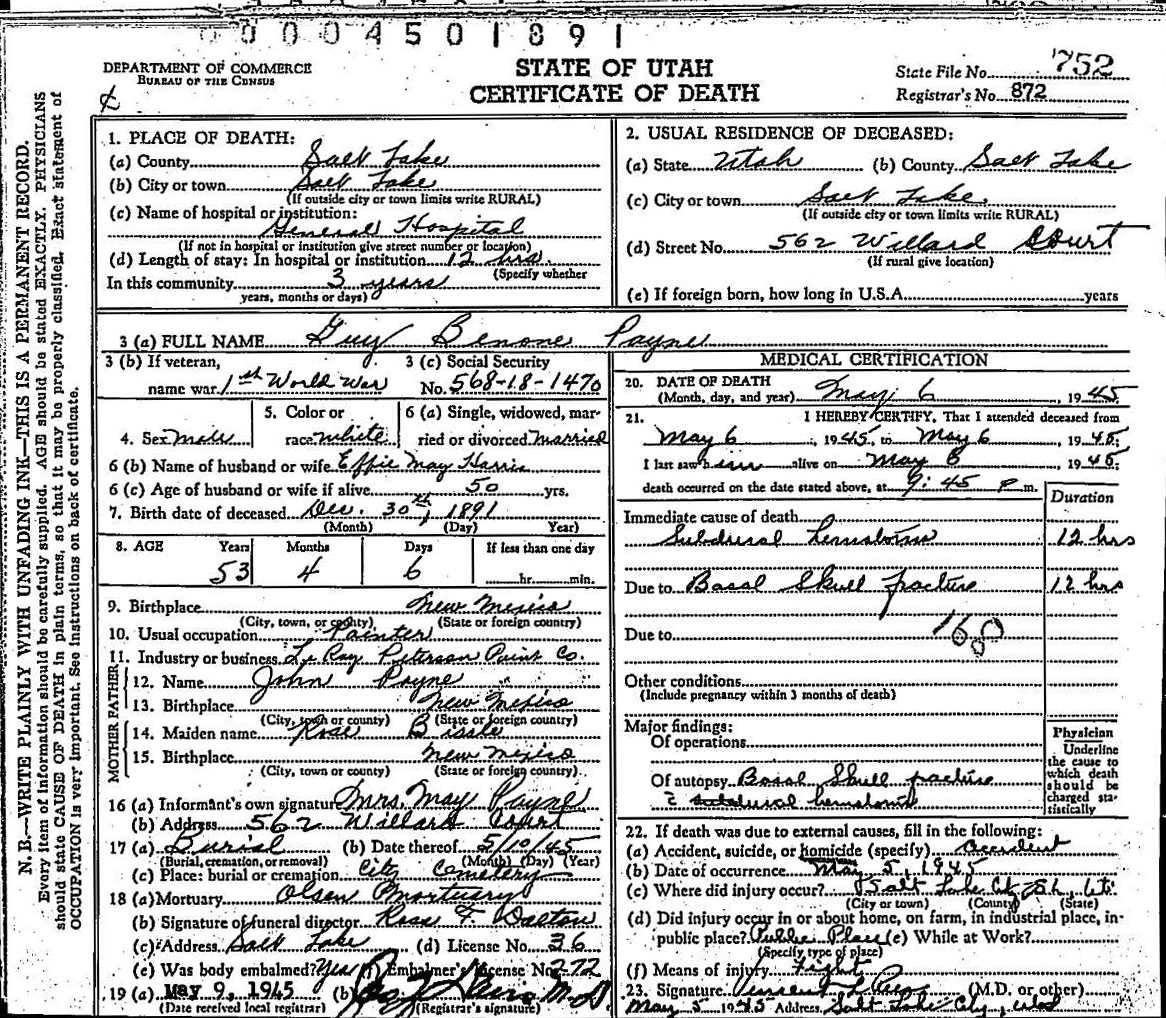 0004501891
DEPARTMENT OF COMMERCE
BUREAU OF THE CENSUS
STATE OF UTAH
CERTIFICATE OF DEATH
State File No. 752
Registrar's No. 872
N. B.—WRITE PLAINLY WITH UNFADING INK—THIS IS A PERMANENT RECORD.
Every item of information should be carefully supplied. AGE should be stated EXACTLY. PHYSICIANS
should state CAUSE OF DEATH in plain terms, so that it may be properly classified. Exact statement of
OCCUPATION is very important. See instructions on back of certificate.
1. PLACE OF DEATH:
(a) County Salt Lake
(b) City or town Salt Lake
(If outside city or town limits write RURAL)
(c) Name of hospital or institution:
General Hospital
(If not in hospital or institution give street number or location)
(d) Length of stay: In hospital or institution 12 hrs.
(Specify whether
In this community 3 years
years, months or days)
2. USUAL RESIDENCE OF DECEASED:
(a) State Utah (b) County Salt Lake
(c) City or town Salt Lake
(If outside city or town limits write RURAL)
(d) Street No. 562 Willard Court
(If rural give location)
(e) If foreign born, how long in U.S.A. years
3 (a) FULL NAME Guy Benone Payne
3 (b) If veteran, 3 (c) Social Security
name war 1th World War No. 568-18-1470
5. Color or 6 (a) Single, widowed, mar-
4. Sex Male race White ried or divorced Married
6 (b) Name of husband or wife Effie May Harris
6 (c) Age of husband or wife if alive 50 yrs.
7. Birth date of deceased Dec. 30th, 1891
(Month) (Day) Year)
8. AGE Years Months Days If less than one day
53 4 6 hr. min.
9. Birthplace New Mexico
(City, town, or county) (State or foreign country)
10. Usual occupation Painter
11. Industry or business Le Roy Peterson Paint Co.
FATHER
12. Name John Payne
13. Birthplace New Mexico
(City, town or county) (State or foreign country)
MOTHER
14. Maiden name Rose
15. Birthplace New Mexico
(City, town or county) (State or foreign country)
16 (a) Informant's own signature Mrs. May Payne
(b) Address 562 Willard Court
17 (a) Burial (b) Date thereof 5/10/45
(Burial, cremation, or removal) (Month) (Day) (Year)
(c) Place: burial or cremation City Cemetery
18 (a) Mortuary Olsen Mortuary
(b) Signature of funeral director Ross F. Dalton
(c) Address Salt Lake (d) License No. 36
(e) Was body embalmed? Yes (f) Embalmer's License No. 272
19 (a) May 9, 1945 (b) M.D.
(Date received local registrar) (Registrar's signature)
MEDICAL CERTIFICATION
20. DATE OF DEATH
(Month, day, and year) May 6, 1945
21. I HEREBY CERTIFY, That I attended deceased from
May 6, 1945, to May 6, 1945.
I last saw him alive on May 6, 1945.
death occurred on the date stated above, at 9:45 P m.
Duration
Immediate cause of death
Subdural hematoma 12 hrs
Due to Basal Skull fracture 12 hrs
Due to 168
Other conditions
(Include pregnancy within 3 months of death)
Major findings:
Of operations
Of autopsy Basal Skull fracture
subdural hematoma
Physician
Underline
the cause to
which death
should be
charged sta-
tistically
22. If death was due to external causes, fill in the following:
(a) Accident, suicide, or homicide (specify) Accident
(b) Date of occurrence May 5, 1945
(c) Where did injury occur? Salt Lake
(City or town) (County) (State)
(d) Did injury occur in or about home, on farm, in industrial place, in
public place? Public Place (e) While at Work?
(Specify type of place)
(f) Means of injury Fight
23. Signature Vincent L. (M.D. or other)
May 5 1945 Address Salt Lake City, Utah